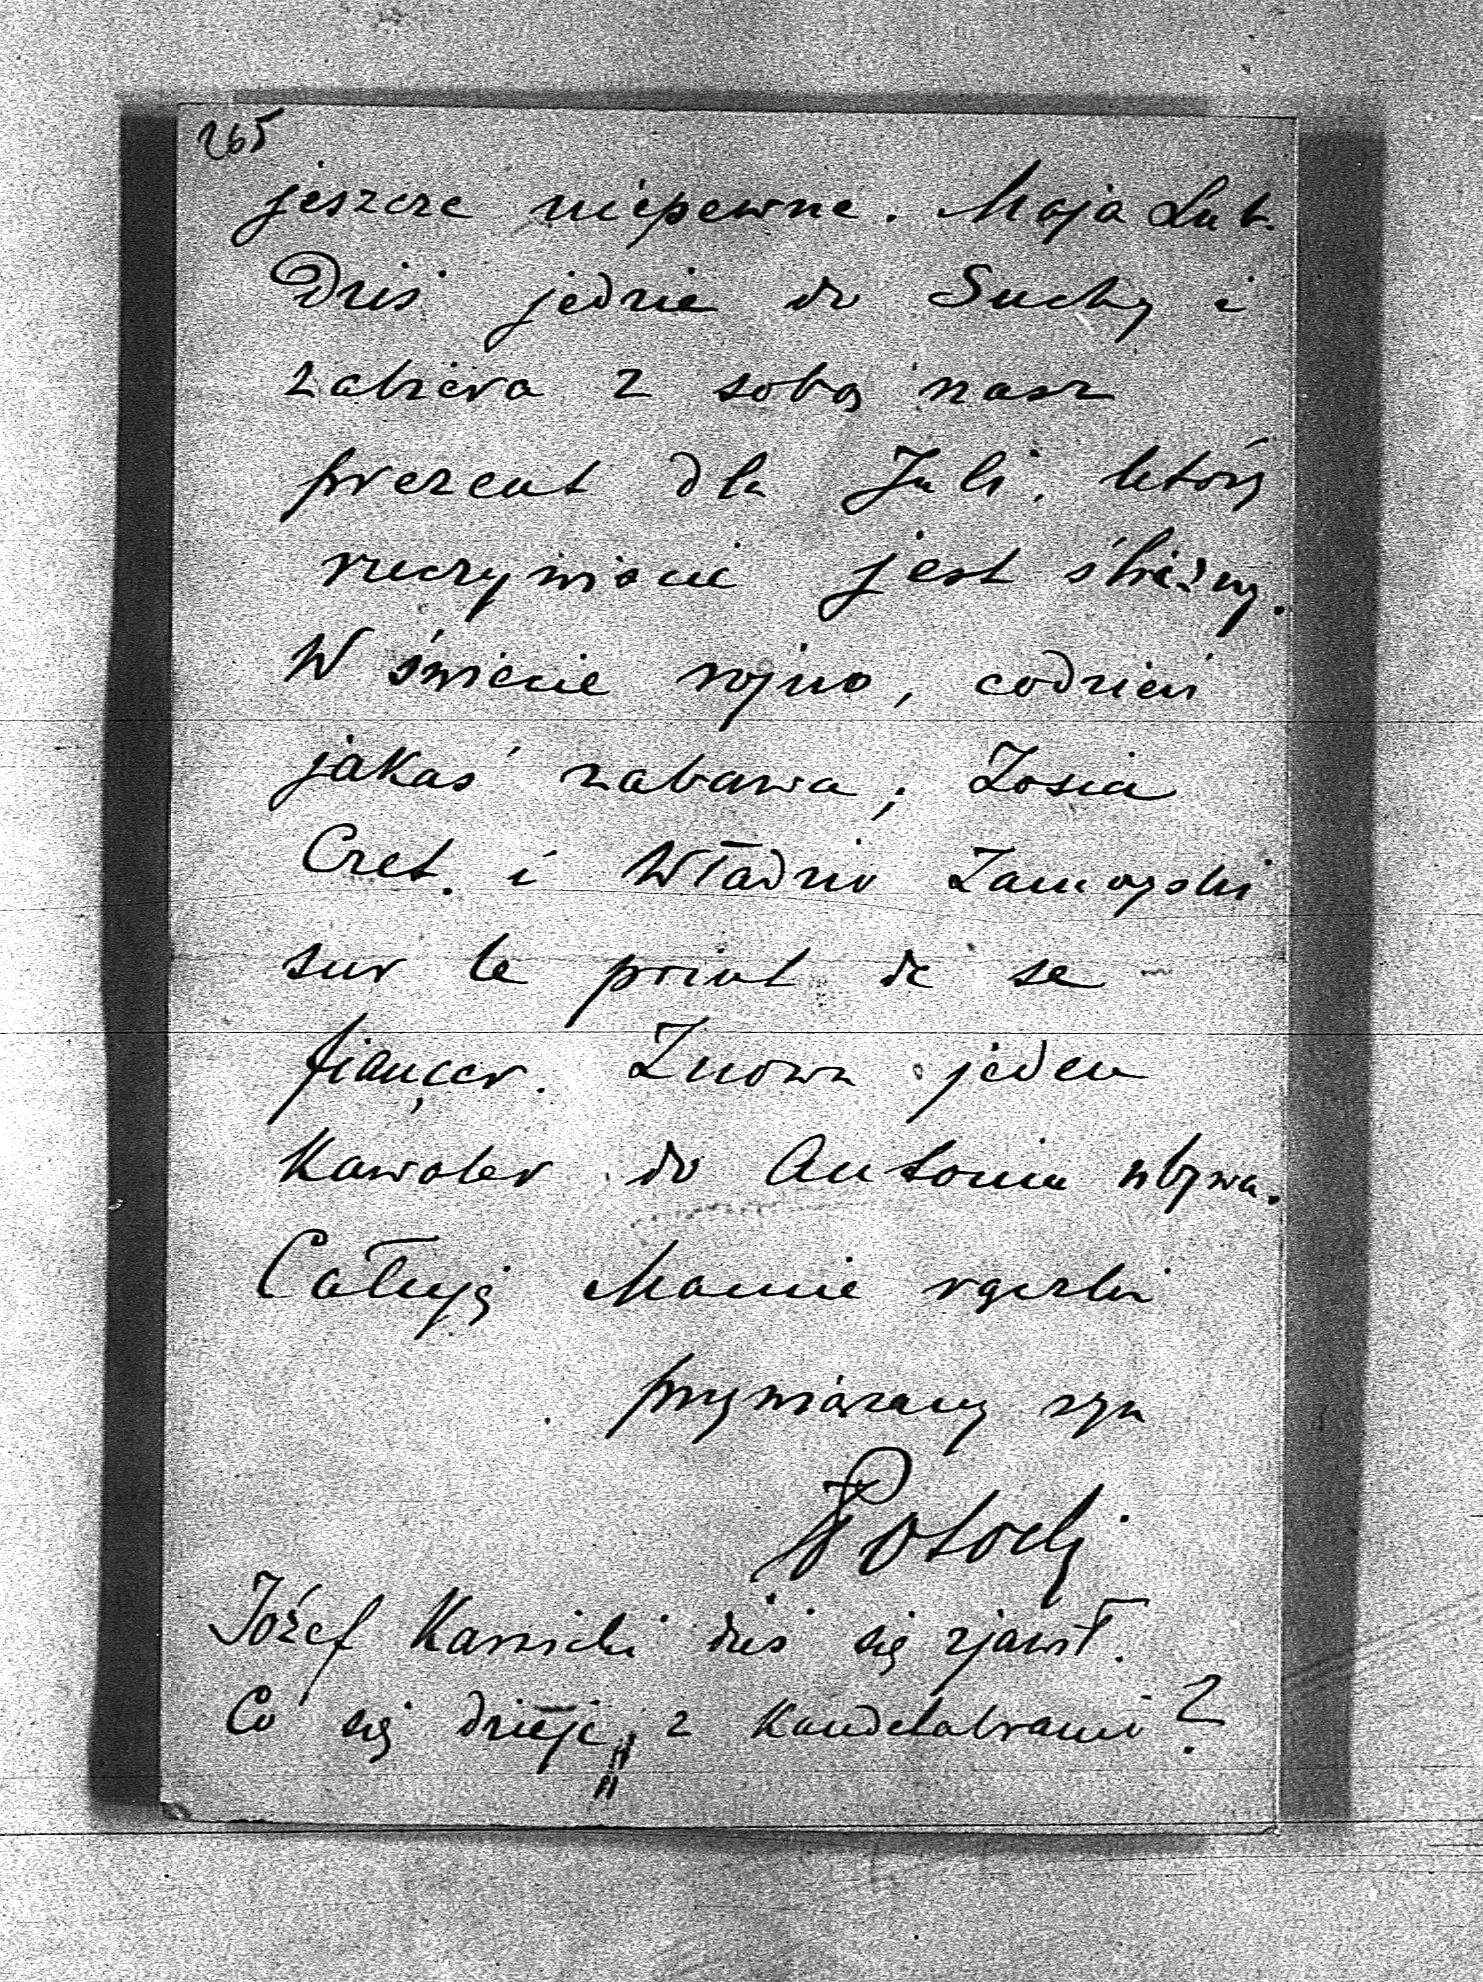 265
jeszcze niepewne. Maja Lub.
Dziś jedzie do Suchy i
zabiera z sobą nasz
prezent dla Juli, który
rzeczywiście jest śliczny.
W świecie rojno, codzień
jakaś zabawa; Zosia
Czet. i Władzio Zamoyski
sur le point de se
fiançer. Znowu jeden
Kawaler do Antonin ubywa.
Całuję Mamie rączki
przywiązany syn
Potocki
Józef Karnicki dziś się zjawił.
Co się dzieje z Kandelabrami?